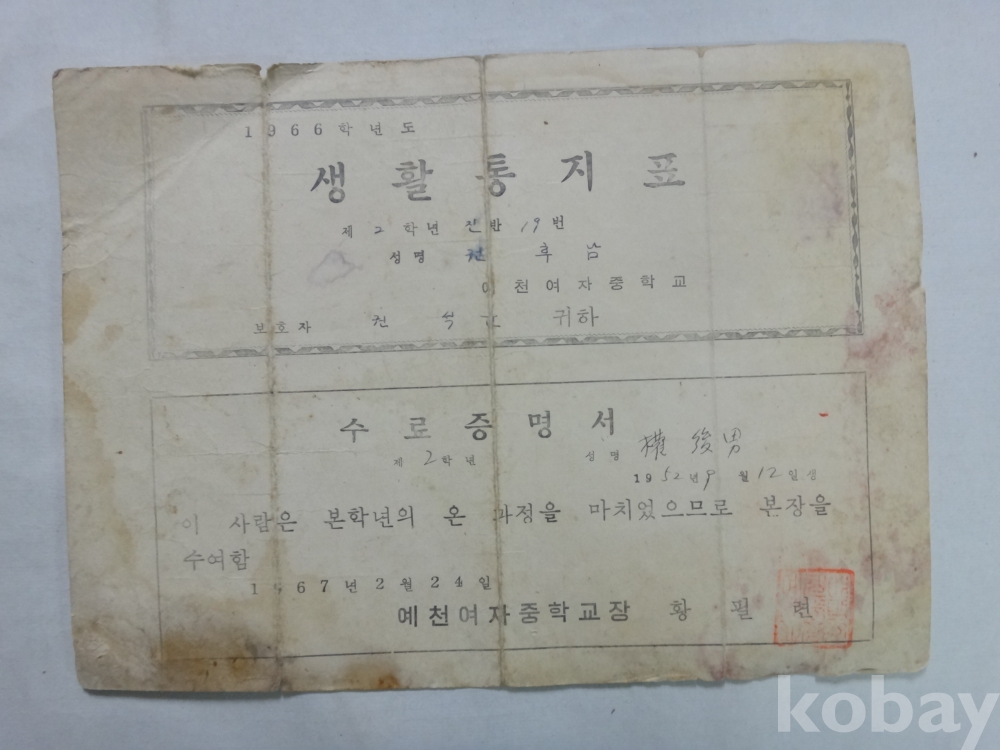 1966학년도
생활통지표
제 2 학년 진반 19번
성명 권 후 남
예천여자중학교
보호자 권 석 귀하
수료증명서
제 2학년 성명 權 後男
1952년 9월 12일생
이 사람은 본학년의 온 과정을 마치었으므로 본장을
수여함
1967년 2월 24일
예천여자중학교장 황필련
kobay